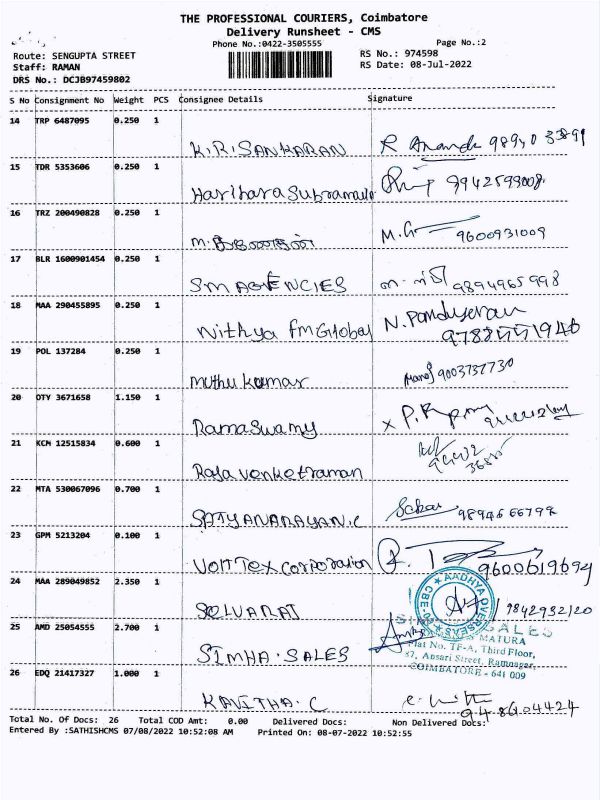 THE PROFESSIONAL COURIERS, Coimbatore
Delivery Runsheet - CMS
Phone No.:0422-3505555 Page No.:2
Route: SENGUPTA STREET RS No.: 974598
Staff: RAMAN RS Date: 08-Jul-2022
DRS No.: DCJB97459802
S No Consignment No Weight PCS Consignee Details Signature
14 TRP 6487095 0.250 1
K.R.SANKARAN R Ananda
15 TDR 5353606 0.250 1
Harihara Subramani 9942599008
16 TRZ 200490828 0.250 1
M. M.G 9600931009
17 BLR 1600901454 0.250 1
SM AGENCIES 9894965998
18 MAA 290455895 0.250 1
Nithya fm Global N. Pandiyeran
19 POL 137284 0.250 1
Muthu kumar Manoj 9003737730
20 OTY 3671658 1.150 1
Ramaswamy
21 KCM 12515834 0.600 1
Raja venketraman
22 MTA 530067096 0.700 1
SATYANARAYAN.C Sekar 9894666797
23 GPM 5213204 0.100 1
VOltTex corporation 9600619694
24 MAA 289049852 2.350 1
SELVARAJ 9842932120
AADHYA OVERSEAS
25 AMD 25054555 2.700 1
SIMHA SALES
SALES
MATURA
Flat No. TF-A, Third Floor,
37, Ansari Street, Ramnagar,
COIMBATORE - 641 009
26 EDQ 21417327 1.000 1
KAVITHA.C 948604424
Total No. Of Docs: 26 Total COD Amt: 0.00 Delivered Docs: Non Delivered Docs:
Entered By :SATHISHCMS 07/08/2022 10:52:08 AM Printed On: 08-07-2022 10:52:55